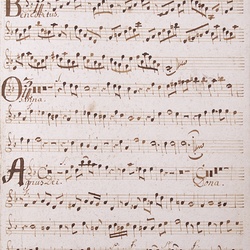 Benedictus.
Osanna.
Agnus Dei.
Dona.